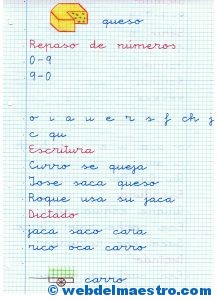 queso
Repaso de números
0-9
9-0
o i a u e r s f ch j
c qu
Escritura
Curro se queja
Jose saca queso
Roque usa su jaca
Dictado
jaca saco cara
rico oca carro
carro
© webdelmaestro.com